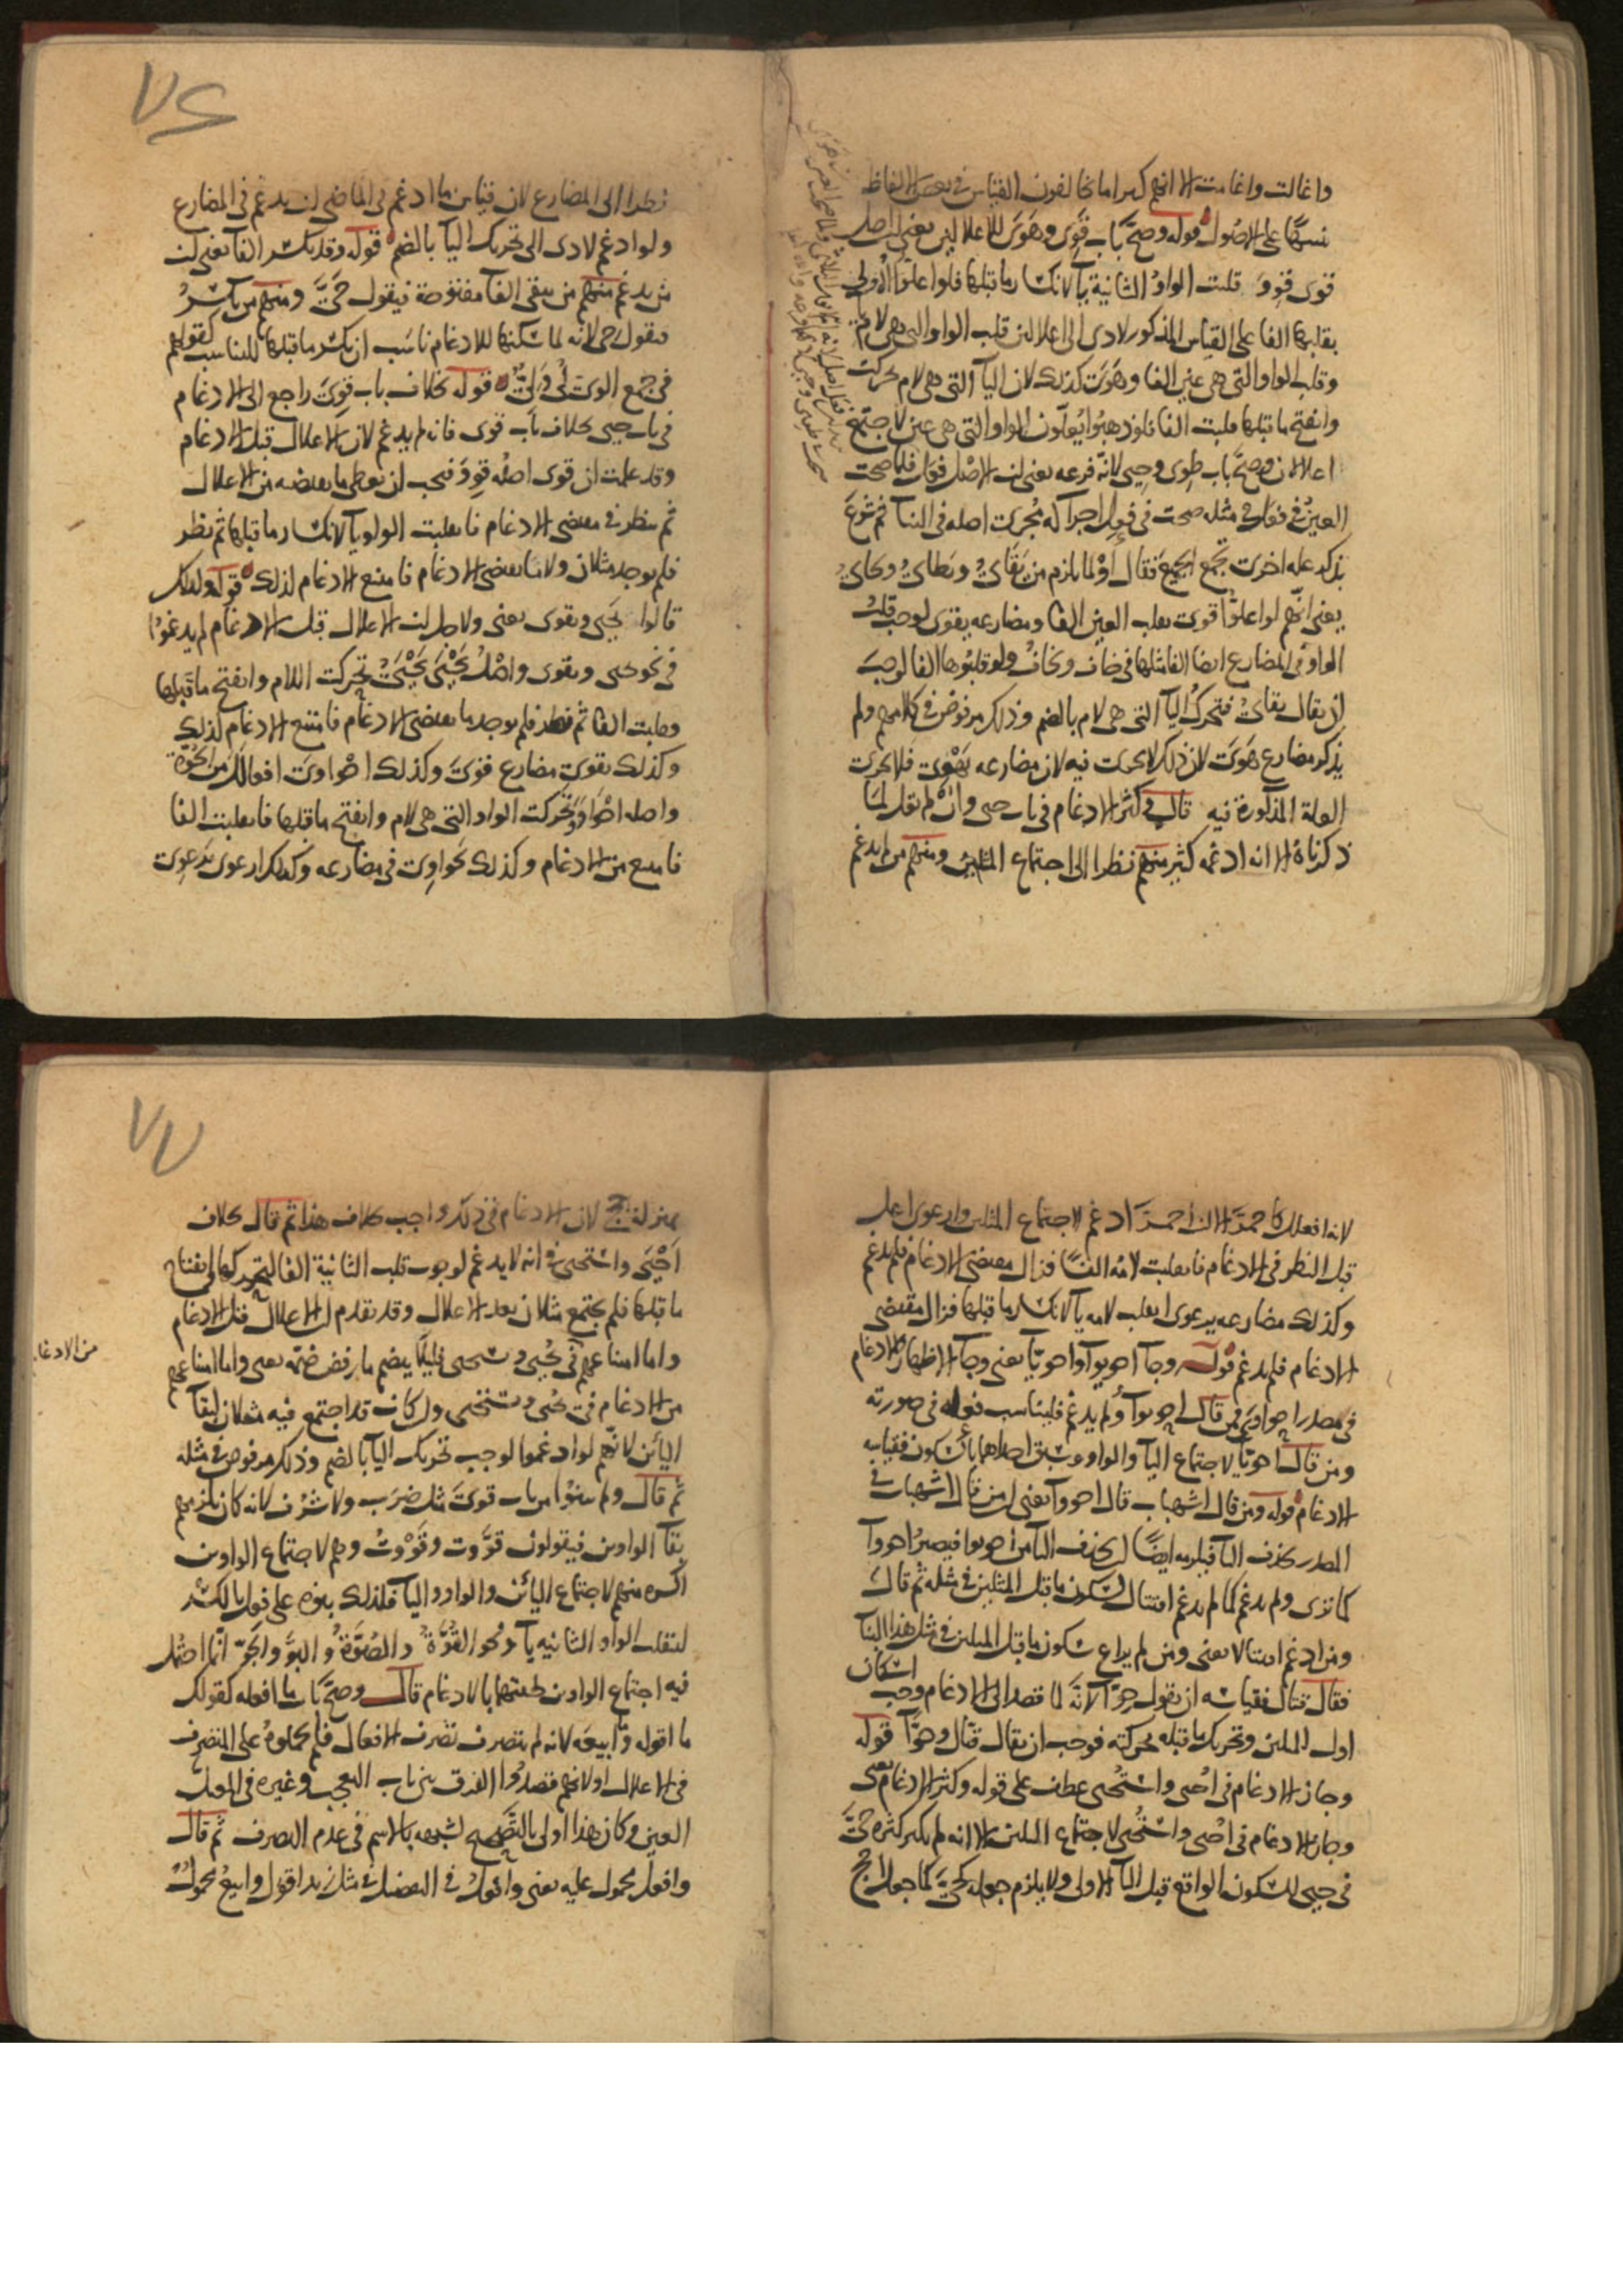 واغالت واغامت الا انهم كثيرا ما يخالفون القياس في بعض الالفاظ
تنبيها على الاصول قوله وصح باب قوي وهوي للاعلالين يعني ان اصل
قوي قوو قلبت الواو الثانية يآ لانكسار ما قبلها فلوا علوا الاولى
بقلبها الفا على القياس المذكور لادى الى اعلالين قلب الواو التي هي لام يآ
وقلب الواو التي هي عين الفا وهوي كذلك لان اليآ التي هي لام تحركت
وانفتح ما قبلها قلبت الفا فلو ذهبوا يعلون الواو التي هي عين لاجتمع
اعلالان وصح باب طوي وحيي لانه فرعه يعني ان الاصل فعل فلما صحت
العين في فعل في مثله صحت في فعل اجرآ له مجرى اصله في البنآ ثم شرع
يذكر علة اخرى تجمع الجميع فقال او لما يلزم من يقاي ويطاي ويحاي
يعني انهم لو اعلوا قوي بقلب العين الفا ومضارعه يقوى لوجب قلب
الواو في المضارع ايضا الفا مثلها في خاف ويخاف ولو قلبوها الفا لوجب
ان يقال يقاي فتحرك اليآ التي هي لام بالضم وذلك مرفوض في كلامهم ولم
يذكر مضارع هوي لان ذلك لا يجري فيه لان مضارعه يهوي فلا تجري
العلة المذكورة فيه قال وكثر الادغام في باب حيي وان لم تقل لما
ذكرناه الا انه ادغمه كثير منهم نظرا الى اجتماع المثلين ومنهم من لم يدغم
٧٦
نظرا الى المضارع لان قياس ما ادغم في الماضي ان يدغم في المضارع
ولو ادغم لادى الى تحريك اليآ بالضم قوله وقد يكسر الفآ يعني ان
من يدغم منهم من يبقي الفآ مفتوحة فيقول حي ومنهم من يكسر
فيقول حي لانه لما سكنها للادغام ناسب ان يكسر ما قبلها للتناسب كقولهم
في جمع الوى لي ولي قوله بخلاف باب قوي راجع الى الادغام
في باب حيي بخلاف باب قوي فانه لم يدغم لان الاعلال قبل الادغام
وقد علمت ان قوي اصله قوو فيجب ان يعطى ما يقتضيه من الاعلال
ثم ينظر في مقتضى الادغام فانقلبت الواو يآ لانكسار ما قبلها ثم نظر
فلم يوجد مثلان ولا ما يقتضي الادغام فامتنع الادغام لذلك قوله ولذلك
قالوا يحيى ويقوى يعني ولاجل ان الاعلال قبل الادغام لم يدغموا
في نحو يحيى ويقوى واصل يحيى يحيي تحركت اللام وانفتح ما قبلها
وقلبت الفا ثم نظر فلم يوجد ما يقتضي الادغام فامتنع الادغام لذلك
وكذلك يقوى مضارع قوي وكذلك احواوى افعالل من الحوة
واصله احواوو تحركت الواو التي هي لام وانفتح ما قبلها فانقلبت الفا
فامتنع من الادغام وكذلك يحواوي في مضارعه وكذلك ارعوى يرعوي
لانه افعلل كاحمر الا ان احمر ادغم لاجتماع المثلين وارعوى اعل
قبل النظر في الادغام فانقلبت لامه الفا فزال مقتضى الادغام فلم يدغم
وكذلك مضارعه يرعوي انقلب لامه يآ لانكسار ما قبلها فزال مقتضى
الادغام فلم يدغم قوله وجآ احويوآ واحويا يعني وجآ الاظهار والادغام
في مصدر احواوى فمن قال احويوآ ولم يدغم فليناسب فعله في صورته
ومن قال احويآ لاجتماع اليآ والواو وسبق احداهما بالسكون فقياسه
الادغام قوله ومن قال اشهباب قال احووآ يعني ان من قال اشهباب في
المصدر بحذف اليآ فيلزمه ايضا ان يحذف اليآ من احويوا فيصير احووآ
كما ترى ولم يدغم كما لم يدغم اقتتال لسكون ما قبل المثلين في مثله ثم قال
ومن ادغم اقتتالا يعني ومن لم يراع سكون ما قبل المثلين في مثل هذا البنآ
فقال قتال فقياسه ان يقول حوآ لانه لما قصد الى الادغام وجب اسكان
اول المثلين وتحريك ما قبله بحركته فوجب ان يقال قتال وحوآ قوله
وجاز الادغام في احيي واستحيي عطف على قوله وكثر الادغام يعني
وجاز الادغام في احيي واستحيي لاجتماع المثلين الا انه لم يكثر كثرة حي
في حيي للسكون الواقع قبل اليآ الاولى ولا يلزم جعله كحي كما جعل احج
٧٧
بمنزلة حج لان الادغام في ذلك واجب بخلاف هذا ثم قال بخلاف
احيى واستحيى فانه لا يدغم لوجوب قلب الثانية الفا لتحركها وانفتاح
ما قبلها فلم يجتمع مثلان بعد الاعلال وقد تقدم ان الاعلال قبل الادغام
واما امتناعهم في يحيي ويستحيي فليلا يضم ما رفض ضمه يعني واما امتناعهم
من الادغام
من الادغام في يحيي ويستحيي وان كان قد اجتمع فيه مثلان لبقآ
اليائين لانهم لو ادغموا لوجب تحريك اليآ بالضم وذلك مرفوض في مثله
ثم قال ولم يبنوا من باب قوي مثل ضرب ولا شرف لانه كان يلزمهم
بقآ الواوين فيقولون قووت وقووت وهم لاجتماع الواوين
اكره منهم لاجتماع اليائين والواو واليآ فلذلك بنوه على فعل بالكسر
لتقلب الواو الثانيه يآ ونحو القوة والصوة والبو والجو انما احتمل
فيه اجتماع الواوين لخفتهما بالادغام قال وصح باب ما افعله كقولك
ما اقوله وما ابيعه لانه لم يتصرف تصرف الافعال فلم يحملوه على المتصرف
في الاعلال او لانهم قصدوا الفرق بين باب التعجب وغيره في المعتل
العين وكان هذا اولى بالتصحيح لشبهه بالاسم في عدم التصرف ثم قال
وافعل محمول عليه يعني وافعل في التفضيل في مثل زيد اقول وابيع محمول